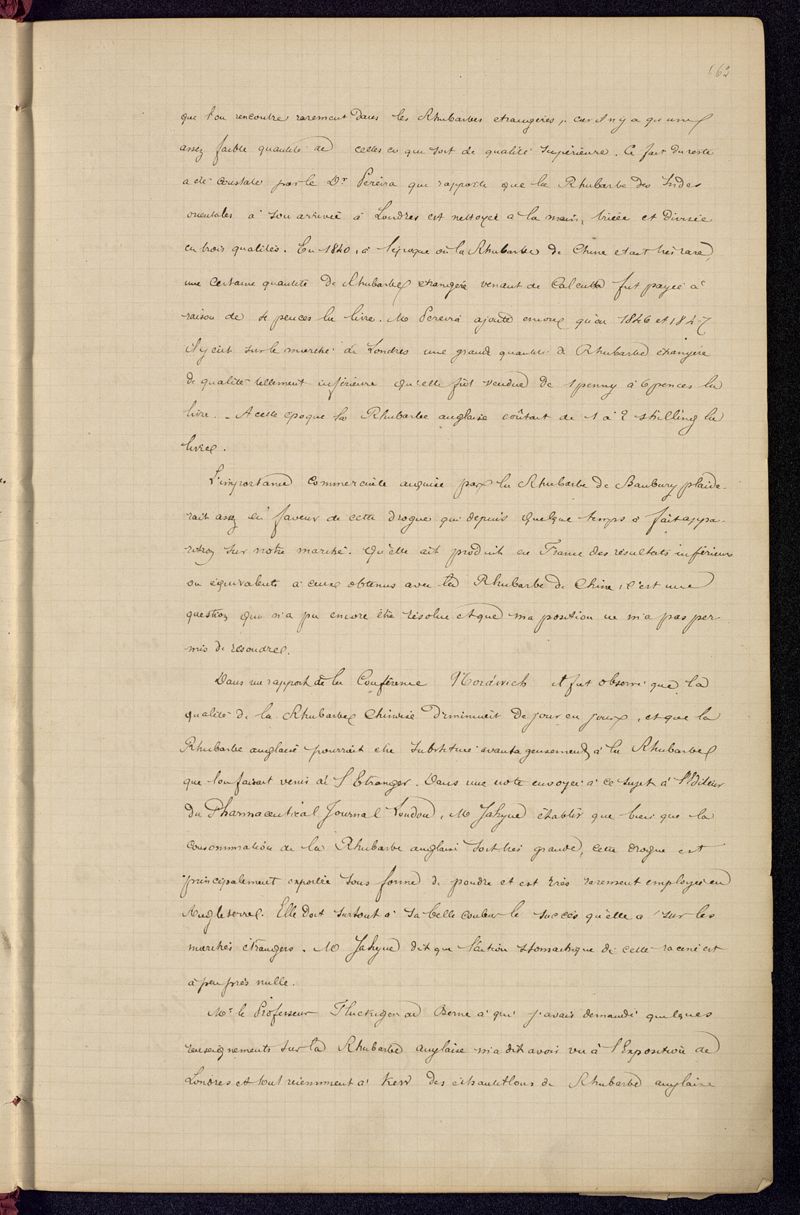 63
que l'on rencontre rarement dans les Rhubarbes etrangères, car il n'y a qu'une
assez faible quantité de celles ci qui soit de qualité supérieure. Ce fait du reste
a été constaté par le Dr Pereira qui rapporte que la Rhubarbe des Indes
orientales à son arrivée à Londres est nettoyée à la main, triée et divisée
en trois qualités. En 1840, à l'époque où la Rhubarbe de Chine etait très rare,
une certaine quantité de Rhubarbe etrangère venant de Calcutta fut payée à
raison de 4 pences la livre. Mr Pereira ajoute encore qu'en 1846 et 1847
il y eut sur le marché de Londres une grande quantité de Rhubarbe étrangère
de qualité tellement inférieure qu'elle fût vendue de 1 penny à 6 pences la
livre. - A cette époque la Rhubarbe anglaise coûtait de 1 à 2 shilling la
livre.
L'importance commerciale acquise par la Rhubarbe de Banbury plaide-
rait assez en faveur de cette drogue qui depuis quelque temps a fait appa-
rition sur notre marché. Qu'elle ait produit en France des résultats inférieurs
ou équivalents à ceux obtenus avec la Rhubarbe de Chine, c'est une
question qui n'a pu encore être résolue et que ma position ne m'a pas per-
mis de resoudre.
Dans un rapport de la Conférence Nordwich il fut observé que la
qualité de la Rhubarbe Chinoise diminuait de jour en jour, et que la
Rhubarbe anglaise pourrait etre substituée avantageusement à la Rhubarbe
que l'on faisait venir de l'Etranger. Dans une note envoyée à ce sujet à l'Editeur
du Pharmaceutical Journal London, Mr Jahyne établit que bien que la
consommation de la Rhubarbe anglaise soit très grande, cette drogue est
principalement exportée sous forme de poudre et est très rarement employée en
Angleterre. Elle doit surtout à sa belle couleur le succès qu'elle a sur les
marchés étrangers. Mr Jahyne dit que l'action stomachique de cette racine est
à peu près nulle.
Mr le Professeur Fluckiger de Berne à qui j'avais demandé quelques
renseignements sur la Rhubarbe anglaise m'a dit avoir vu à l'Exposition de
Londres et tout récemment à Kew des échantillons de Rhubarbe anglaise